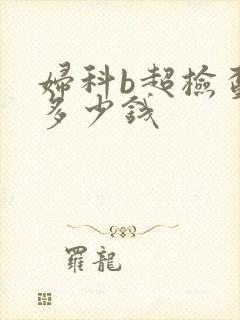 婦科b超檢查
多少錢
羅龍